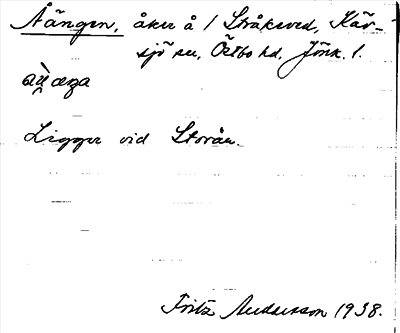 Åängen, åker å 1 Stråkeved, Käv-
sjö sn, Östbo hd, Jönk. l.
Ligger vid Storån.
Fritz Andersson 1938.